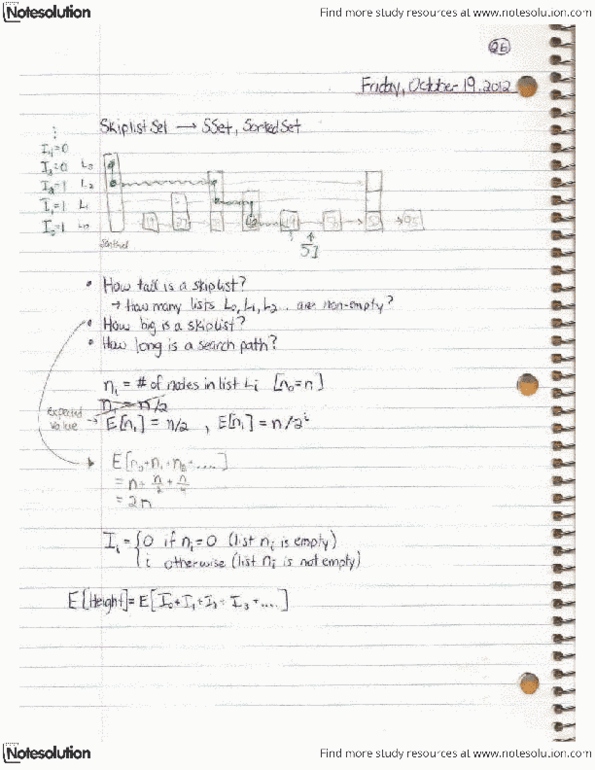 Notesolution
Find more study resources at www.notesolution.com
26
Friday, October 19, 2012
Skiplist Set → SSet, SortedSet
⋮
I₄=0
I₃=0 L₃
I₂=1 L₂
I₁=1 L₁
I₀=1 L₀
sentinel
95
53
• How tall is a skiplist?
→ how many lists L₀, L₁, L₂ .. are non-empty?
• How big is a skiplist?
• How long is a search path?
nᵢ = # of nodes in list Lᵢ [n₀=n]
n₁ = n/2
Expected Value → E[n₁] = n/2 , E[nᵢ] = n/2ⁱ
E[n₀+n₁+n₂+....]
= n+ n/2 + n/4
= 2n
Iᵢ = {0 if nᵢ=0 (list nᵢ is empty)
i otherwise (list nᵢ is not empty)
E[Height] = E[I₀+I₁+I₂+I₃+....]
Notesolution
Find more study resources at www.notesolution.com